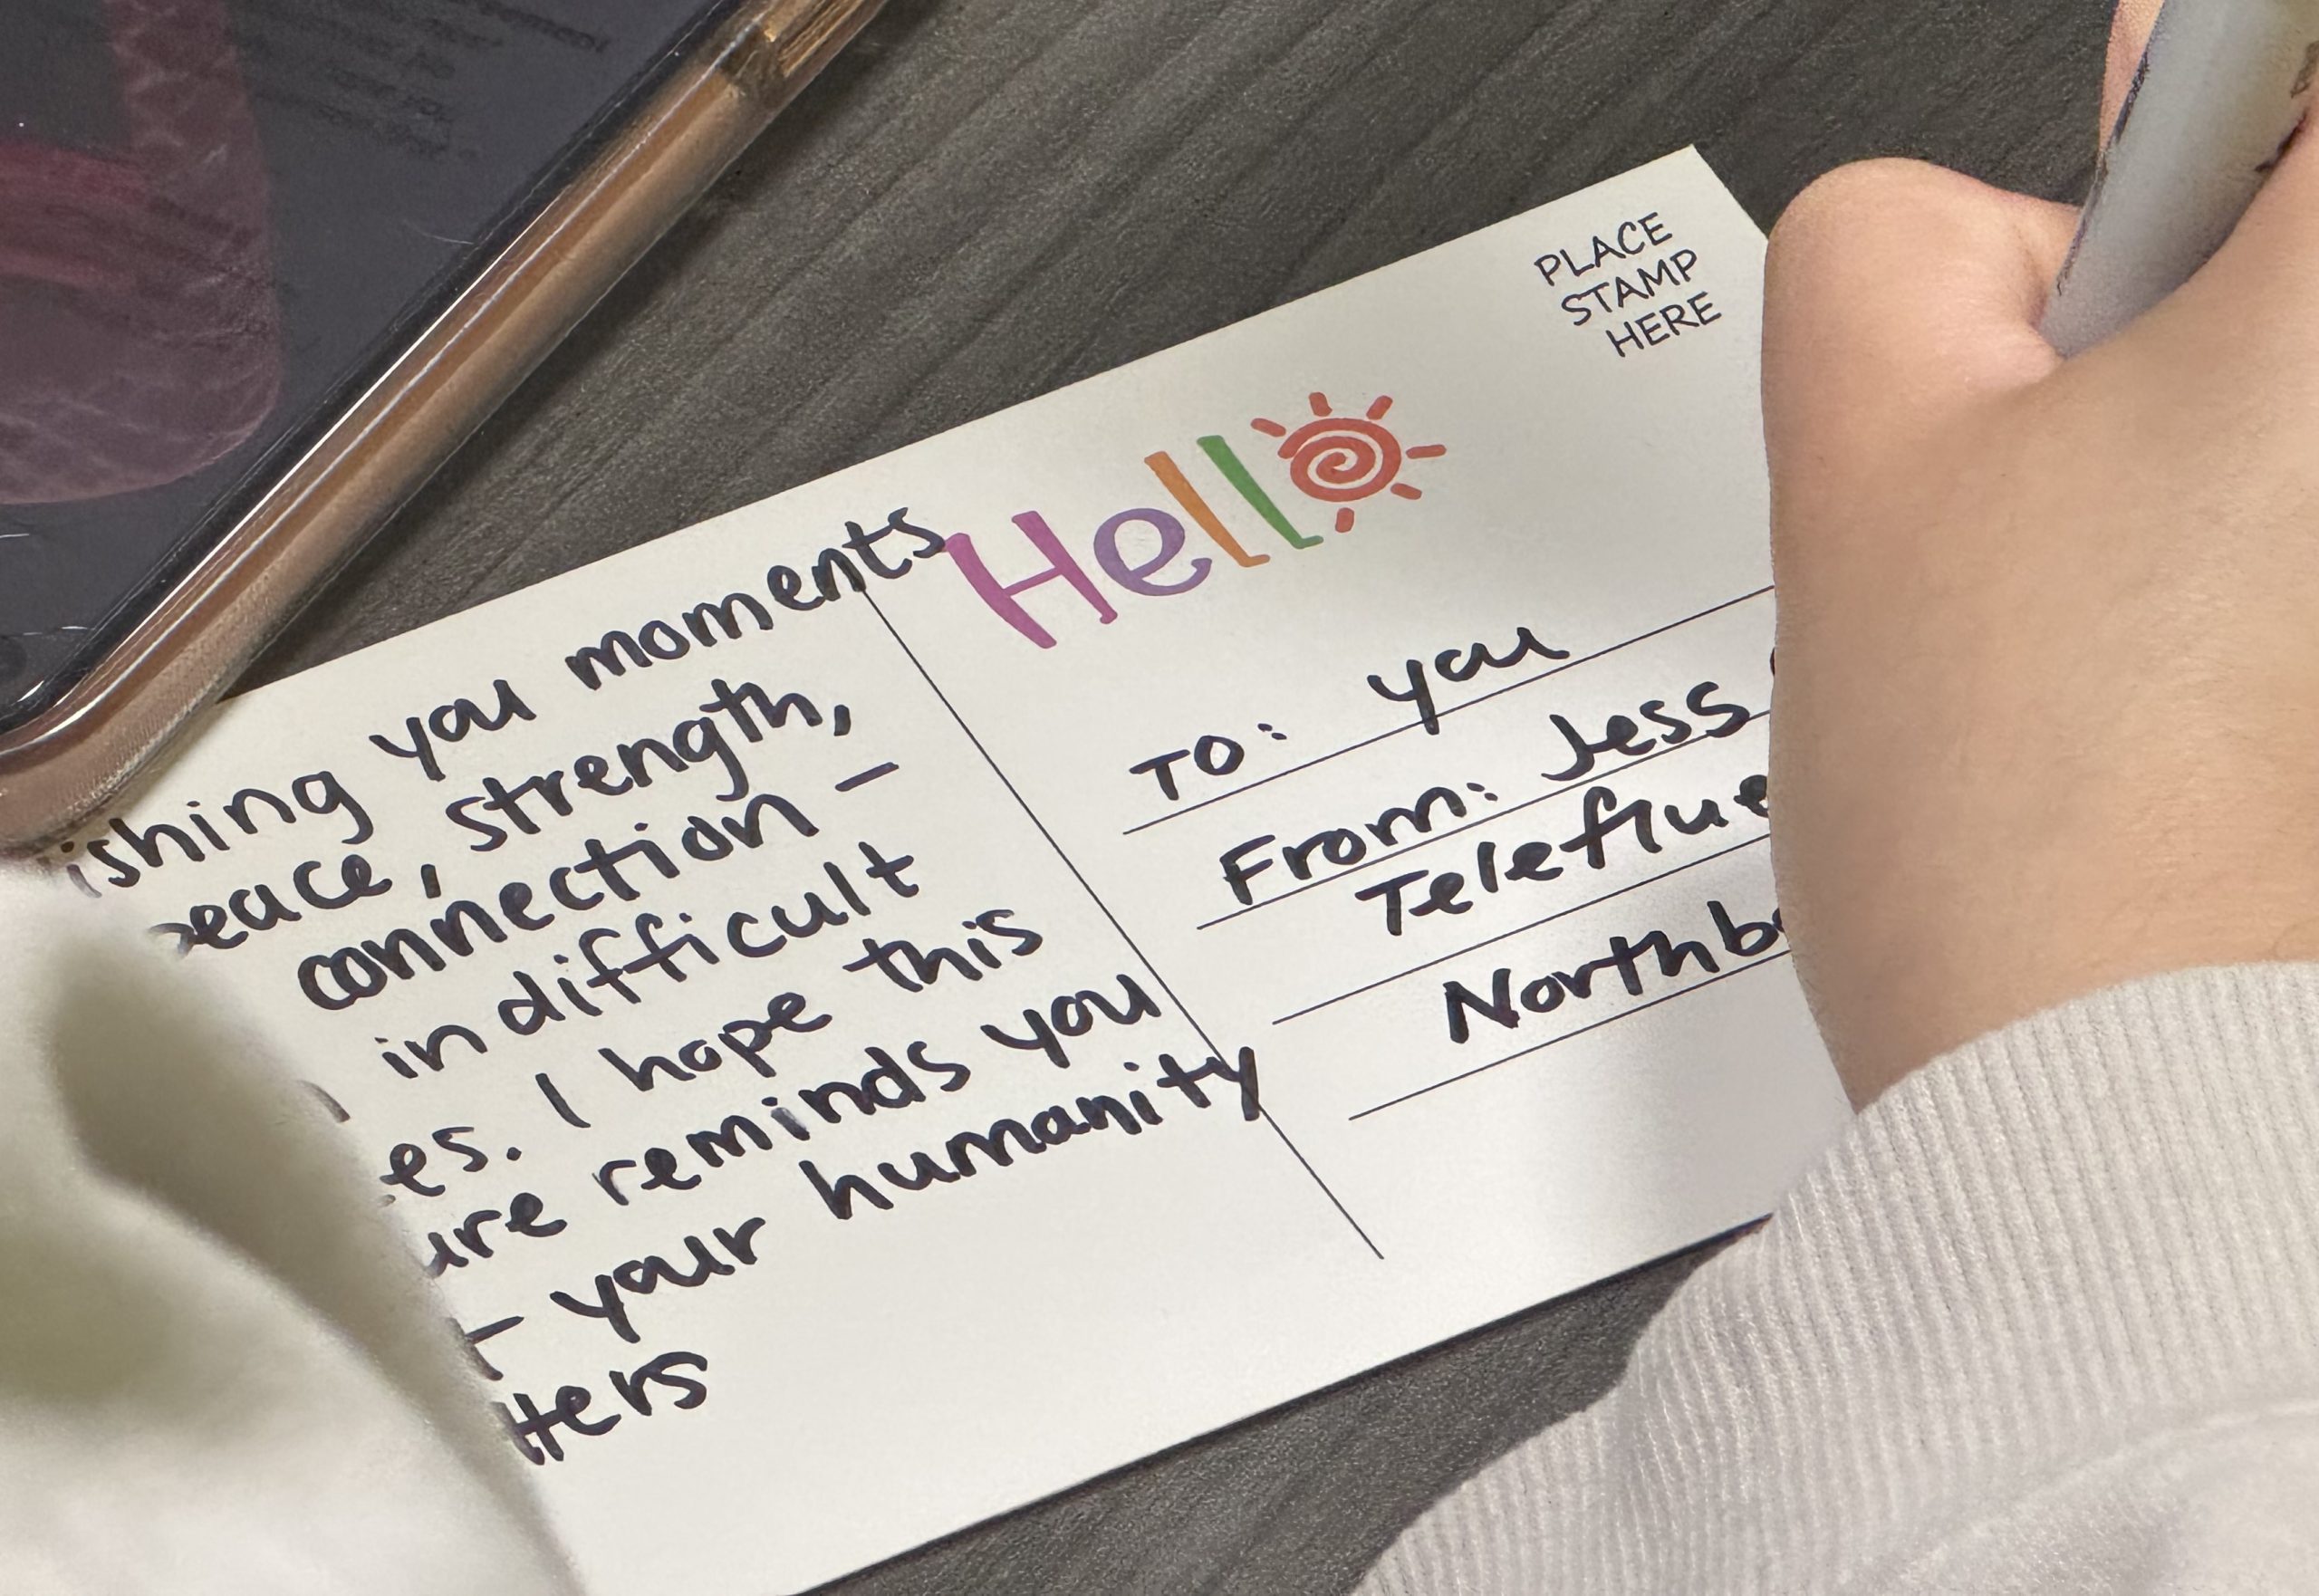 ishing you moments
peace, strength,
connection –
in difficult
es. I hope this
ure reminds you
– your humanity
tters
PLACE
STAMP
HERE
Hello
TO: you
From: Jess
Teleflue
Northb